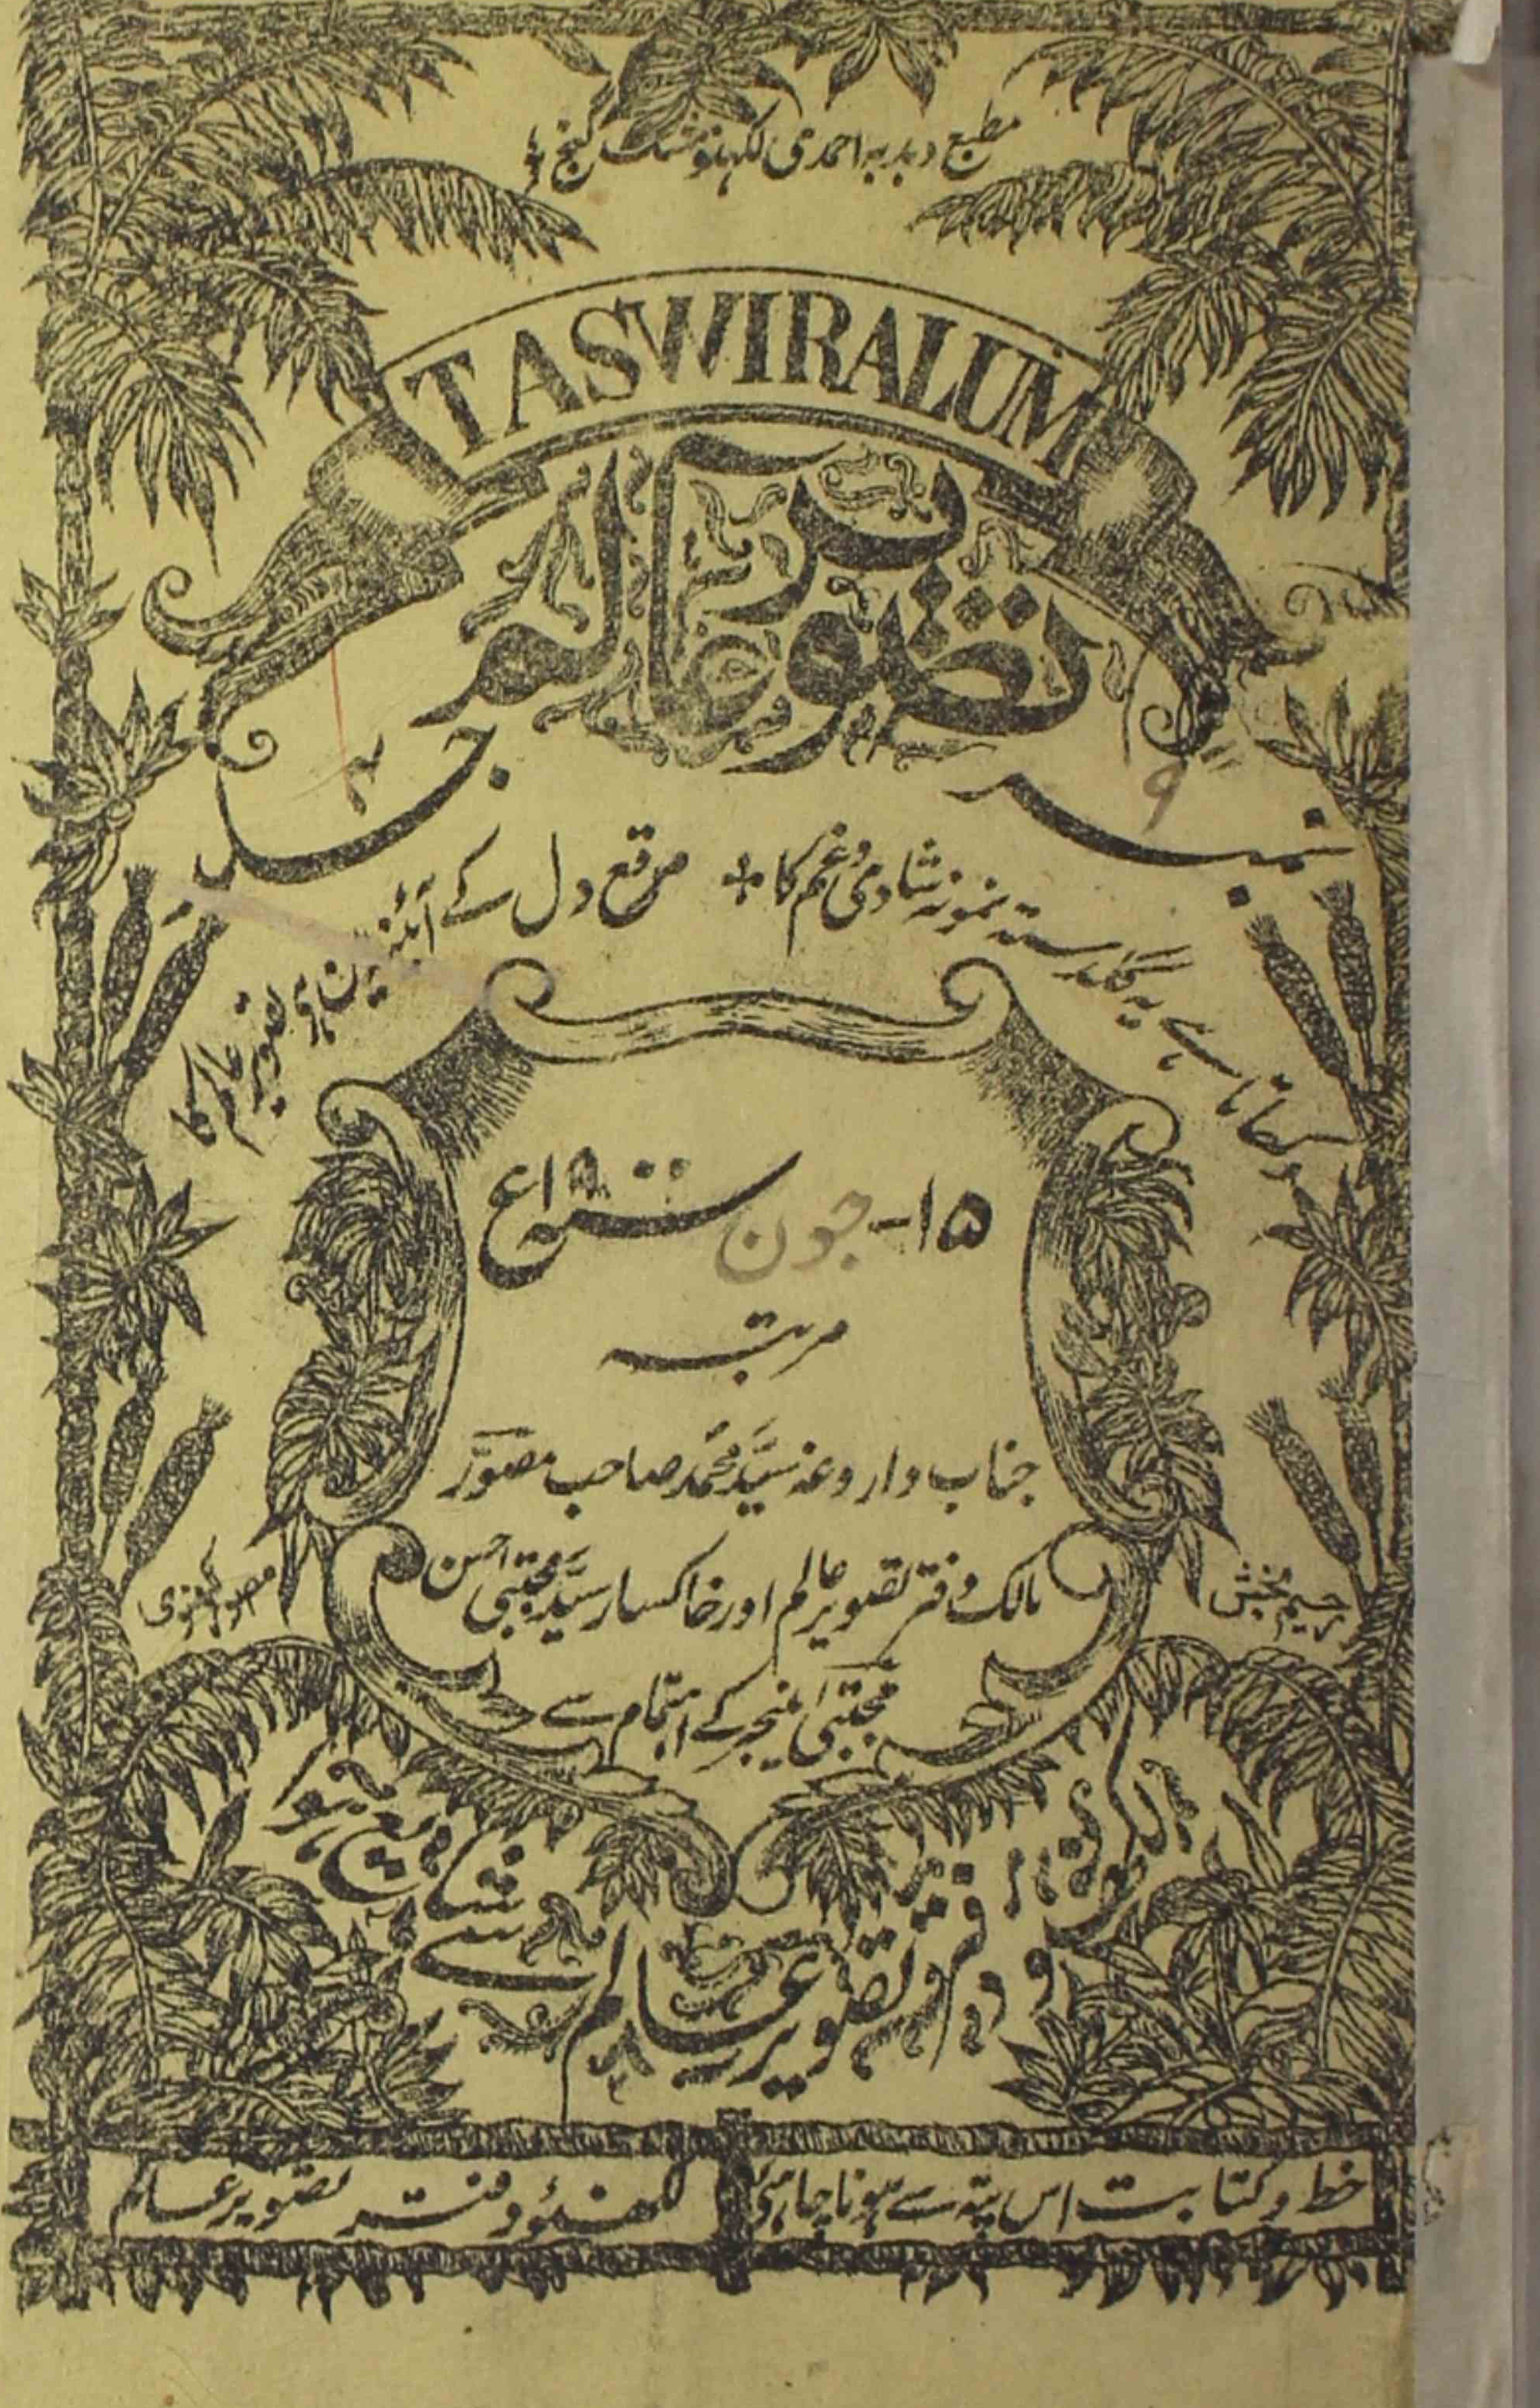 مطبع دبدبہ احمدی لکھنؤ
TASWIRALUM
تصویر عالم
نمبر ۹
جلد ۴
دکھاتا ہے یہ گلدستہ نمونہ شادی و غم کا
مرقع دل کے آئینہ میں ہے تصویر عالم کا
۱۵- جون سنہ ۱۹۰ء
مرتبہ
جناب داروغہ سیّد محمّد صاحب مصوّر
مالک دفتر تصویر عالم اور خاکسار سیّد مجتبیٰ احسن
مجتبیٰ منیجر کے اہتمام سے
رحیم بخش
مصور لکھنوی
دفتر تصویر عالم سے
شایع ہوا
خط و کتابت اس پتہ سے ہونا چاہئے
لکھنؤ دفتر تصویر عالم